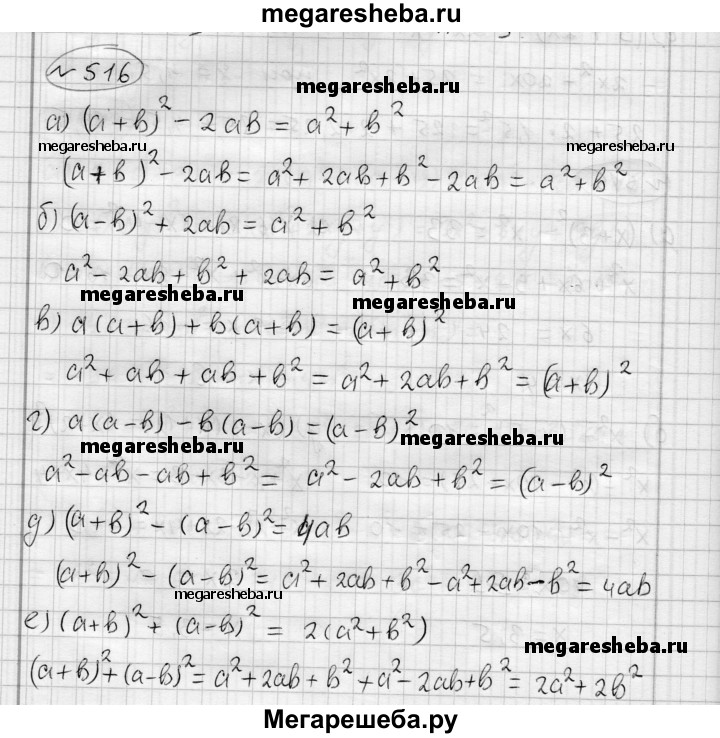 megaresheba.ru
№ 516
megaresheba.ru
а) (a+b)² - 2ab = a² + b²
megaresheba.ru megaresheba.ru
(a+b)² - 2ab = a² + 2ab + b² - 2ab = a² + b²
б) (a-b)² + 2ab = a² + b²
a² - 2ab + b² + 2ab = a² + b²
megaresheba.ru megaresheba.ru
в) a(a+b) + b(a+b) = (a+b)²
a² + ab + ab + b² = a² + 2ab + b² = (a+b)²
г) a(a-b) - b(a-b) = (a-b)²
megaresheba.ru megaresheba.ru
a² - ab - ab + b² = a² - 2ab + b² = (a-b)²
д) (a+b)² - (a-b)² = 4ab
(a+b)² - (a-b)² = a² + 2ab + b² - a² + 2ab - b² = 4ab
megaresheba.ru megaresheba.ru
е) (a+b)² + (a-b)² = 2(a² + b²)
(a+b)² + (a-b)² = a² + 2ab + b² + a² - 2ab + b² = 2a² + 2b²
Мегарешеба.ру